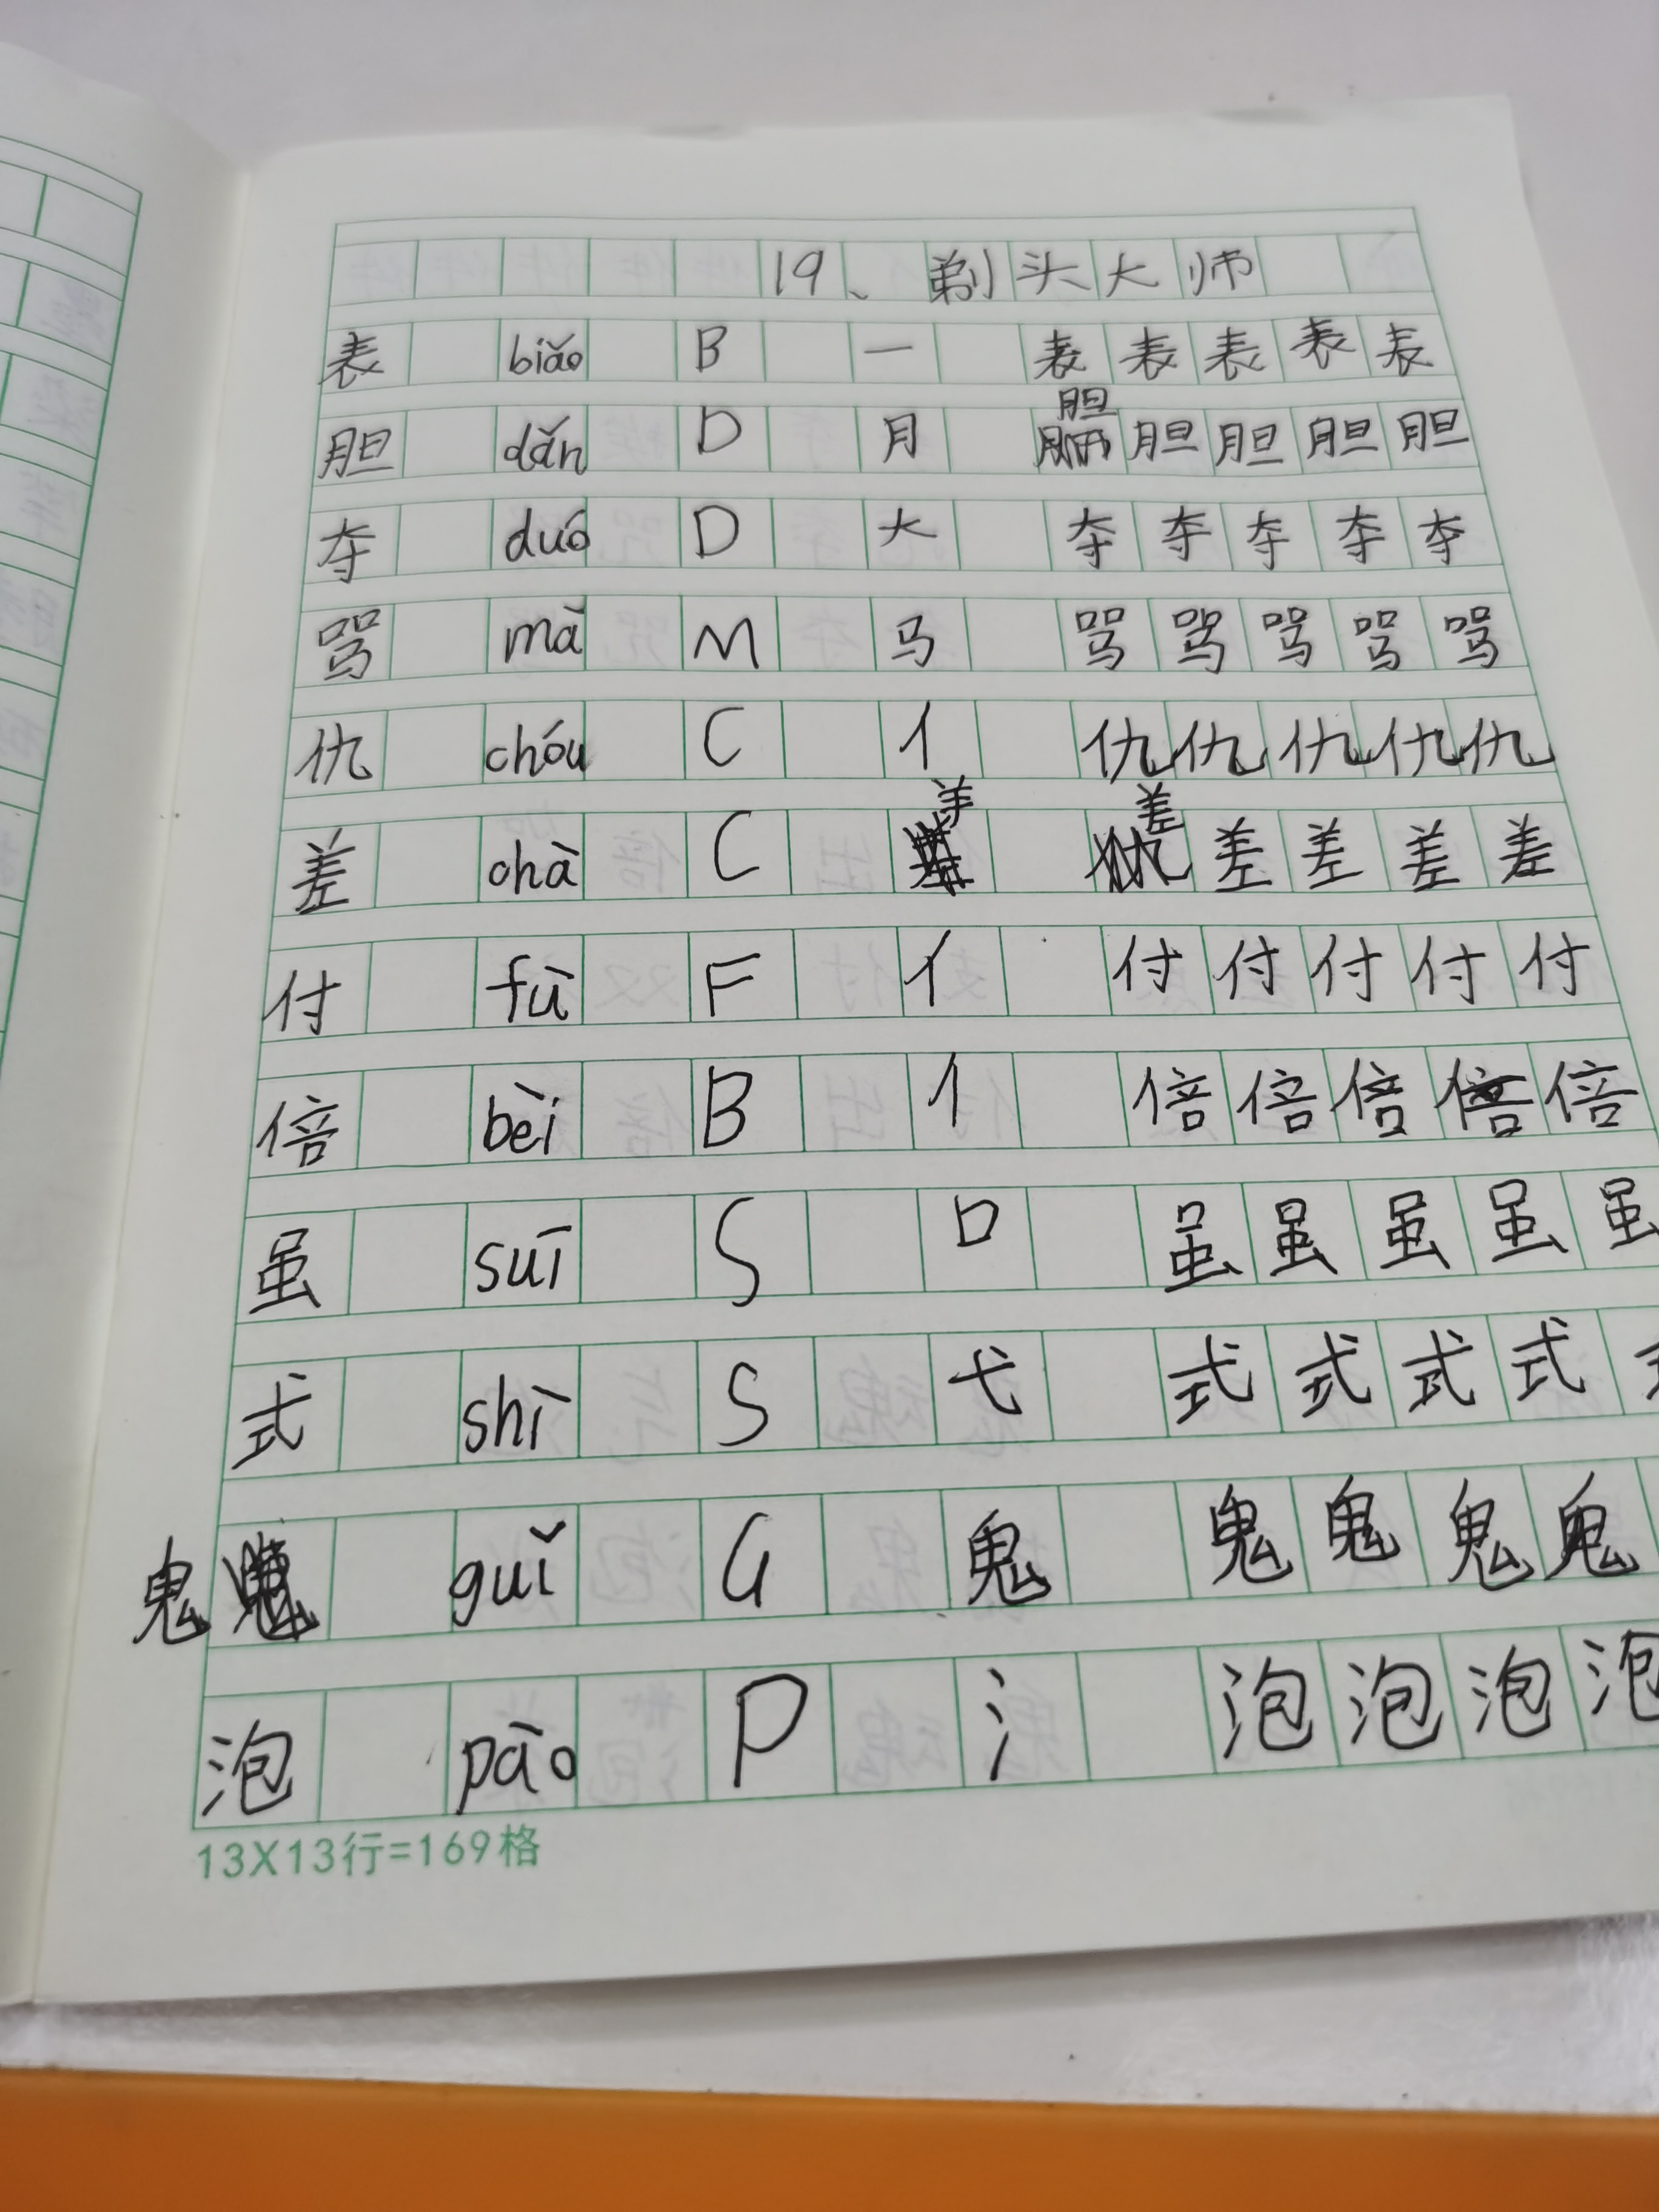 19、剃头大师
表 biǎo B 一 表表表表表
胆 dǎn D 月 胆胆胆胆胆
夺 duó D 大 夺夺夺夺夺
骂 mǎ M 马 骂骂骂骂骂
仇 chóu C 亻 仇仇仇仇仇
差 chà C 羊 差差差差差
付 fù F 亻 付付付付付
倍 bèi B 亻 倍倍倍倍倍
虽 suī S 口 虽虽虽虽虽
式 shì S 弋 式式式式
鬼 guǐ G 鬼 鬼鬼鬼鬼
泡 pào P 氵 泡泡泡泡
13X13行=169格